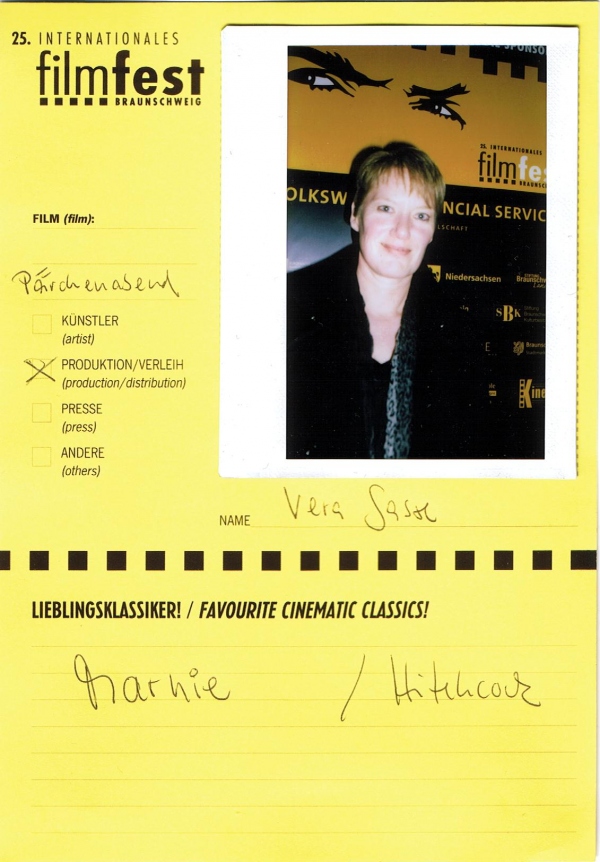 25. INTERNATIONALES
filmfest
BRAUNSCHWEIG
FILM (film):
Pärchenabend
KÜNSTLER
(artist)
PRODUKTION/VERLEIH
(production/distribution)
PRESSE
(press)
ANDERE
(others)
SPONSO
25. INTERNATIONALES
filmfe
BRAUNSCH
OLKSW
NCIAL SERVIC
LSCHAFT
Niedersachsen
SBK
Kine
NAME Vera Sasse
LIEBLINGSKLASSIKER! / FAVOURITE CINEMATIC CLASSICS!
Marnie / Hitchcock